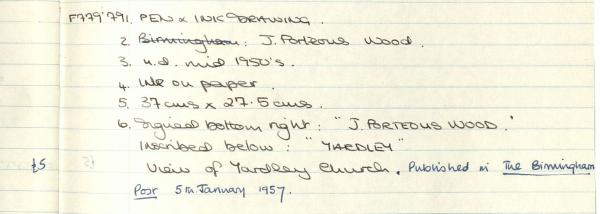 F779'791. PEN & INK DRAWING.
2. Birmingham: J. Porteous Wood.
3. n.d. mid 1950's.
4. Ink on paper.
5. 37cms x 27.5cms.
6. Signed bottom right: "J. PORTEOUS WOOD."
Inscribed below: "YARDLEY"
£5 View of Yardley Church. Published in The Birmingham
Post 5th January 1957.